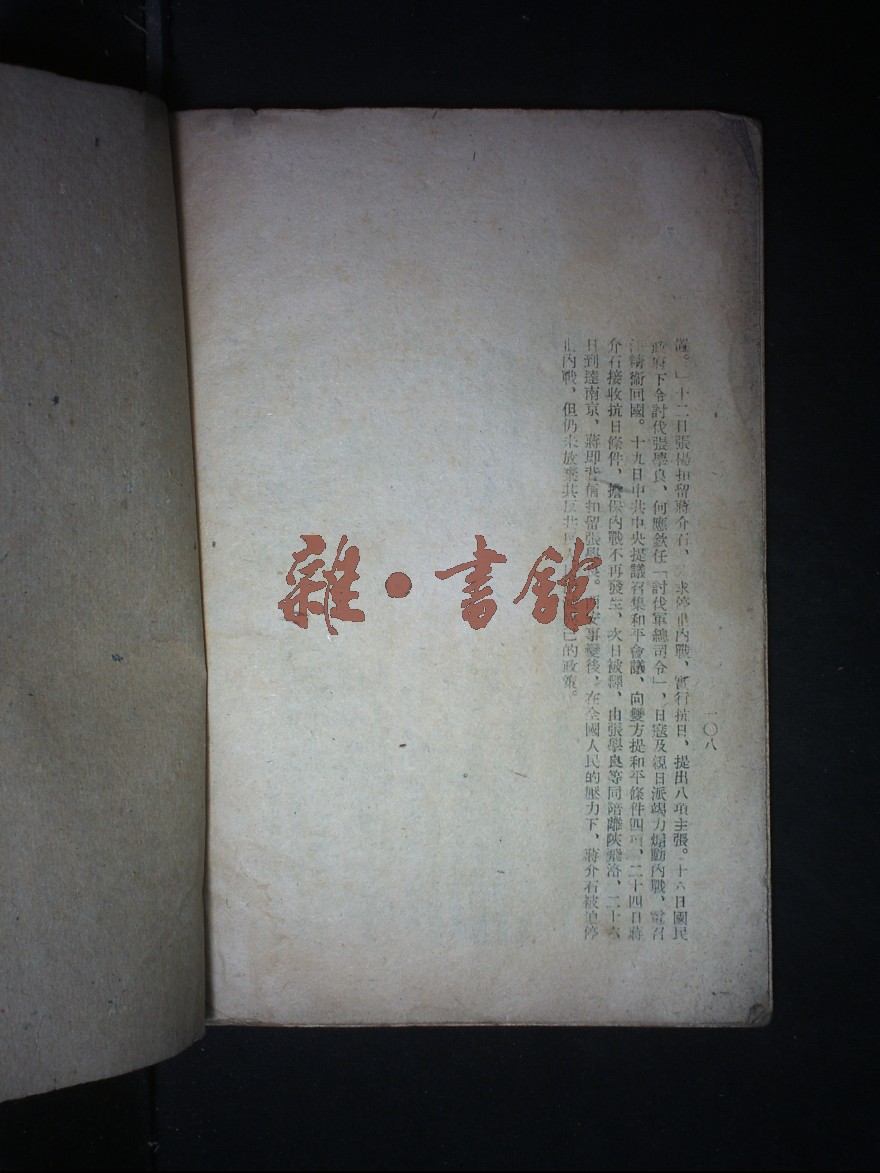 一〇八
置。」十二日張楊扣留蔣介石、求停止內戰、實行抗日、提出八項主張。十六日國民
政府下令討伐張學良、何應欽任「討伐軍總司令」，日寇及親日派竭力煽動內戰、電召
汪精衞回國。十九日中共中央提議召集和平會議、向雙方提和平條件四項、二十四日蔣
介石接收抗日條件，擔保內戰不再發生、次日被釋、由張學良等同陪離陝飛洛、二十六
日到達南京，蔣即背信扣留張學良。西安事變後，在全國人民的壓力下、蔣介石被迫停
止內戰，但仍未放棄其反共已的政策。
雜·書館